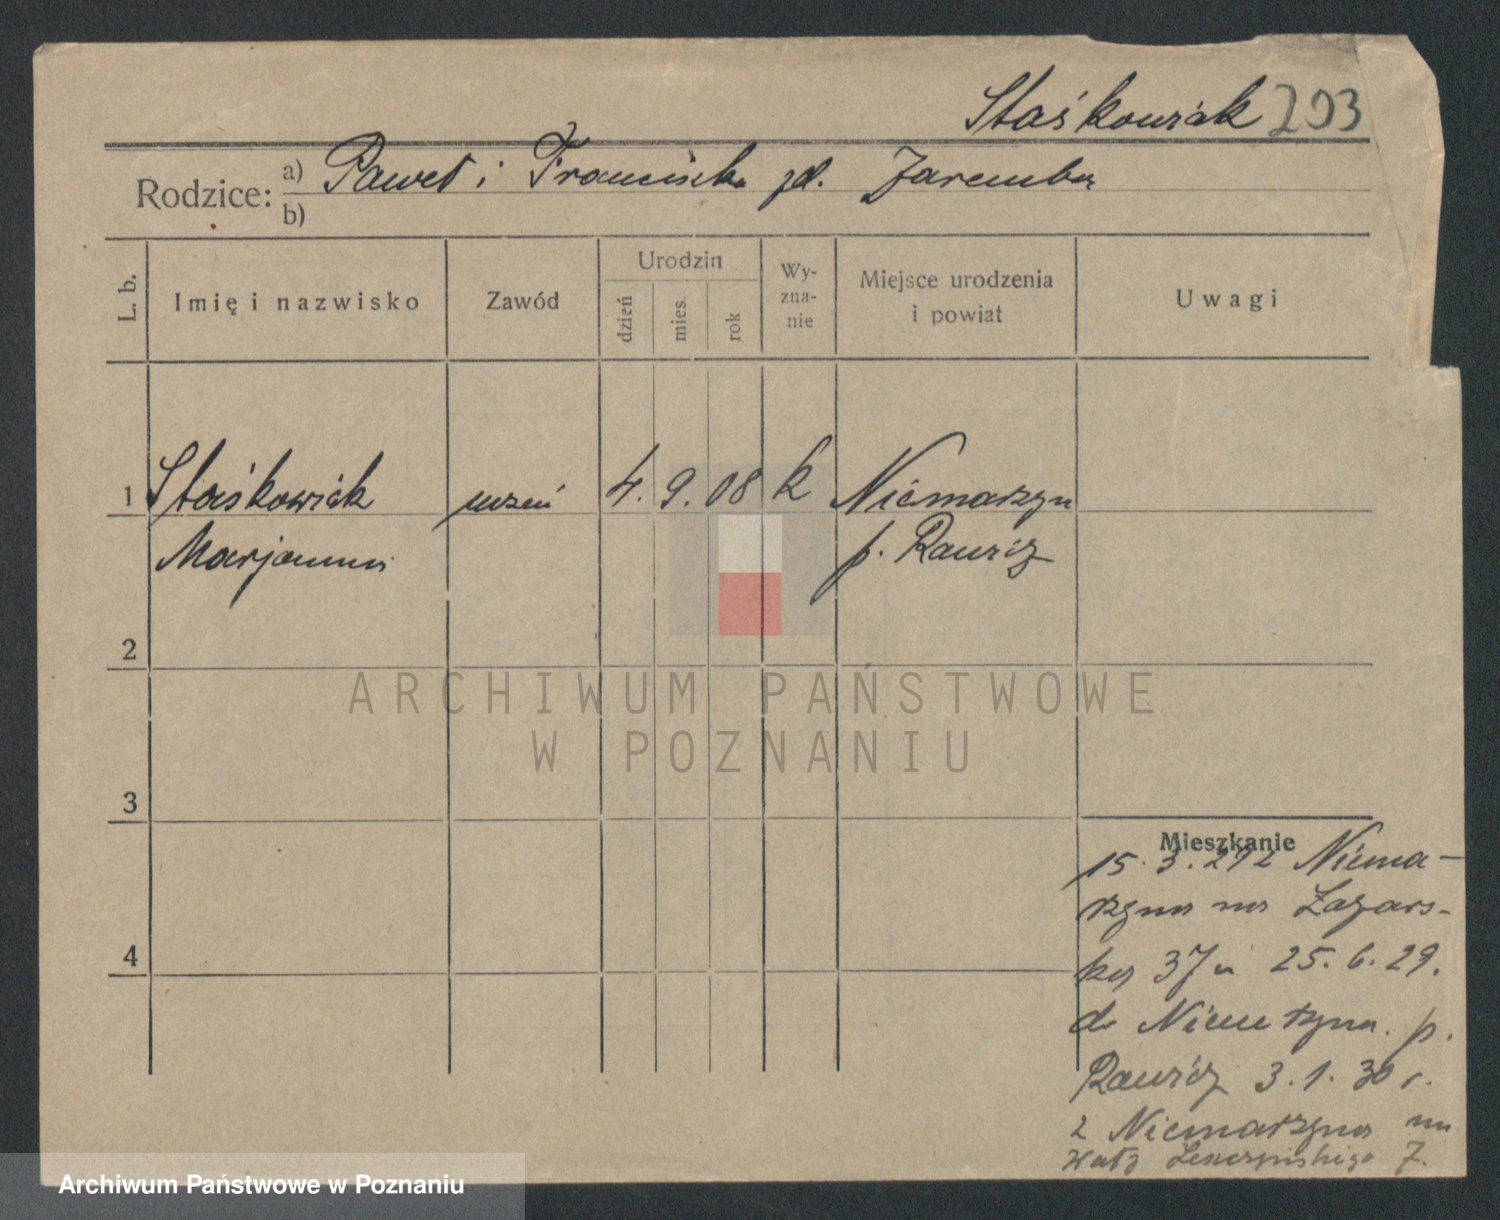 Staśkowiak 293
Rodzice: a) Paweł i Franciszka zd. Zaremba
b)
L. b. Imię i nazwisko Zawód Urodzin dzień mies. rok Wyznanie Miejsce urodzenia i powiat Uwagi
1 Staśkowiak uczeń 4. 9. 08 k Niemarzyn
Marjanna p. Rawicz
2
ARCHIWUM PAŃSTWOWE
W POZNANIU
3
Mieszkanie
15. 3. 29 z Niema-
rzyna na Łazars-
ką 37 25. 6. 29.
do p.
Rawicz 3. 1. 30 r.
4
z Niemarzyna na
Wały Leszczyńskiego 7.
Archiwum Państwowe w Poznaniu